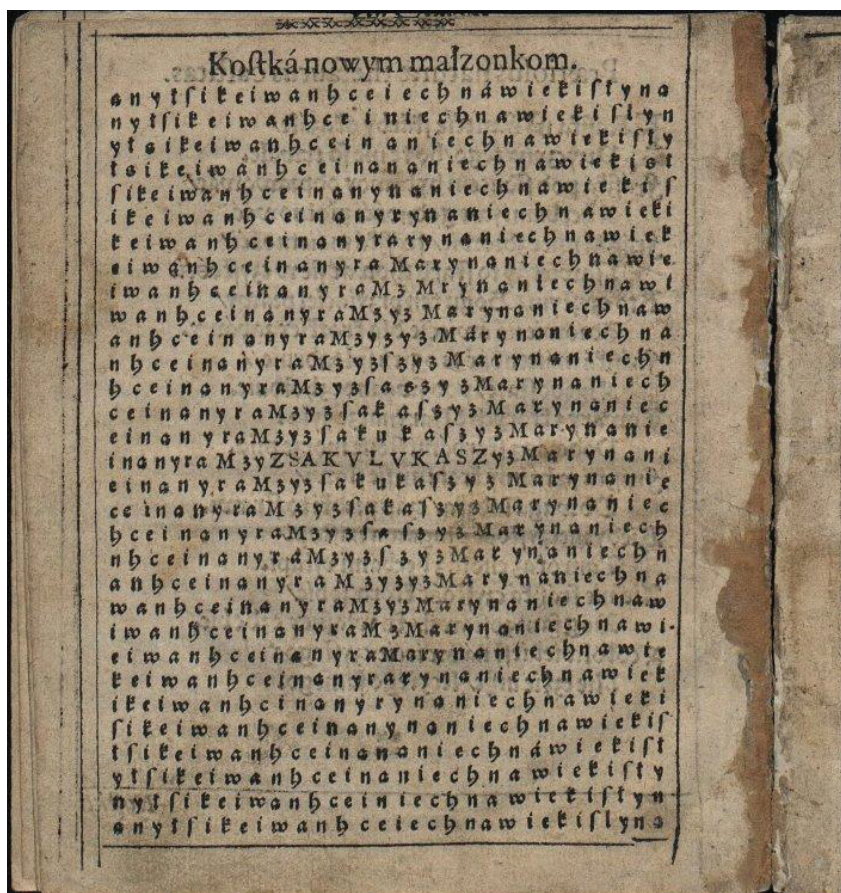 Kostká nowym małzonkom.
anytsikeiwanhceiechnáwiekistyna
nytsikeiwanhceiniechnawiekistyn
ytsikeiwanhceinaniechnawiekisty
tsikeiwanhceinananiechnawiekist
sikeiwanhceinanynaniechnawiekis
ikeiwanhceinanyrynaniechnawieki
keiwanhceinanyrarynaniechnawiek
eiwanhceinanyraMarynaniechnawie
iwanhceinanyraMzMrynaniechnawi
wanhceinanyraMzyzMarynaniechnaw
anhceinanyraMzyzyzMarynaniechna
nhceinanyraMzyzszyzMarynaniechn
hceinanyraMzyzsaszyzMarynaniech
ceinanyraMzyzsakaszyzMarynaniec
einanyraMzyzsakukaszyzMarynanie
inanyraMzyZSAKVLVKASZyzMarynani
einanyraMzyzsakukaszyzMarynanie
ceinanyraMzyzsakaszyzMarynaniec
hceinanyraMzyzsaszyzMarynaniech
nhceinanyráMzyzszyzMarynaniechn
anhceinanyraMzyzyzMarynaniechna
wanhceinanyraMzyzMarynaniechnaw
iwanhceinanyraMzMarynaniechnawi.
eiwanhceinanyraMarynaniechnawie
keiwanhceinanyrarynaniechnawiek
ikeiwanhcinanyrynaniechnawieki
sikeiwanhceinanynaniechnawiekis
tsikeiwanhceinananiechnáwiekist
ytsikeiwanhceinaniechnawiekisty
nytsikeiwanhceiniechnawiekistyn
anytsikeiwanhceiechnawiekislyna